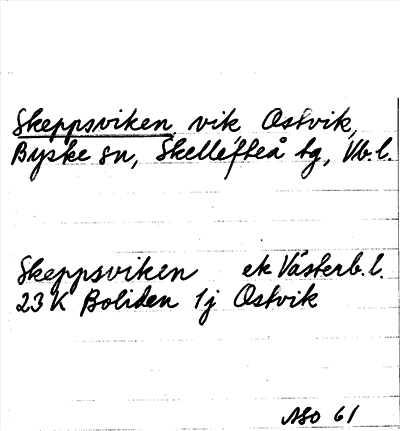 Skeppsviken, vik, Ostvik,
Byske sn, Skellefteå tg, Vb. l.
Skeppsviken ek Västerb. l.
23 K Boliden 1j Ostvik
ASO 61